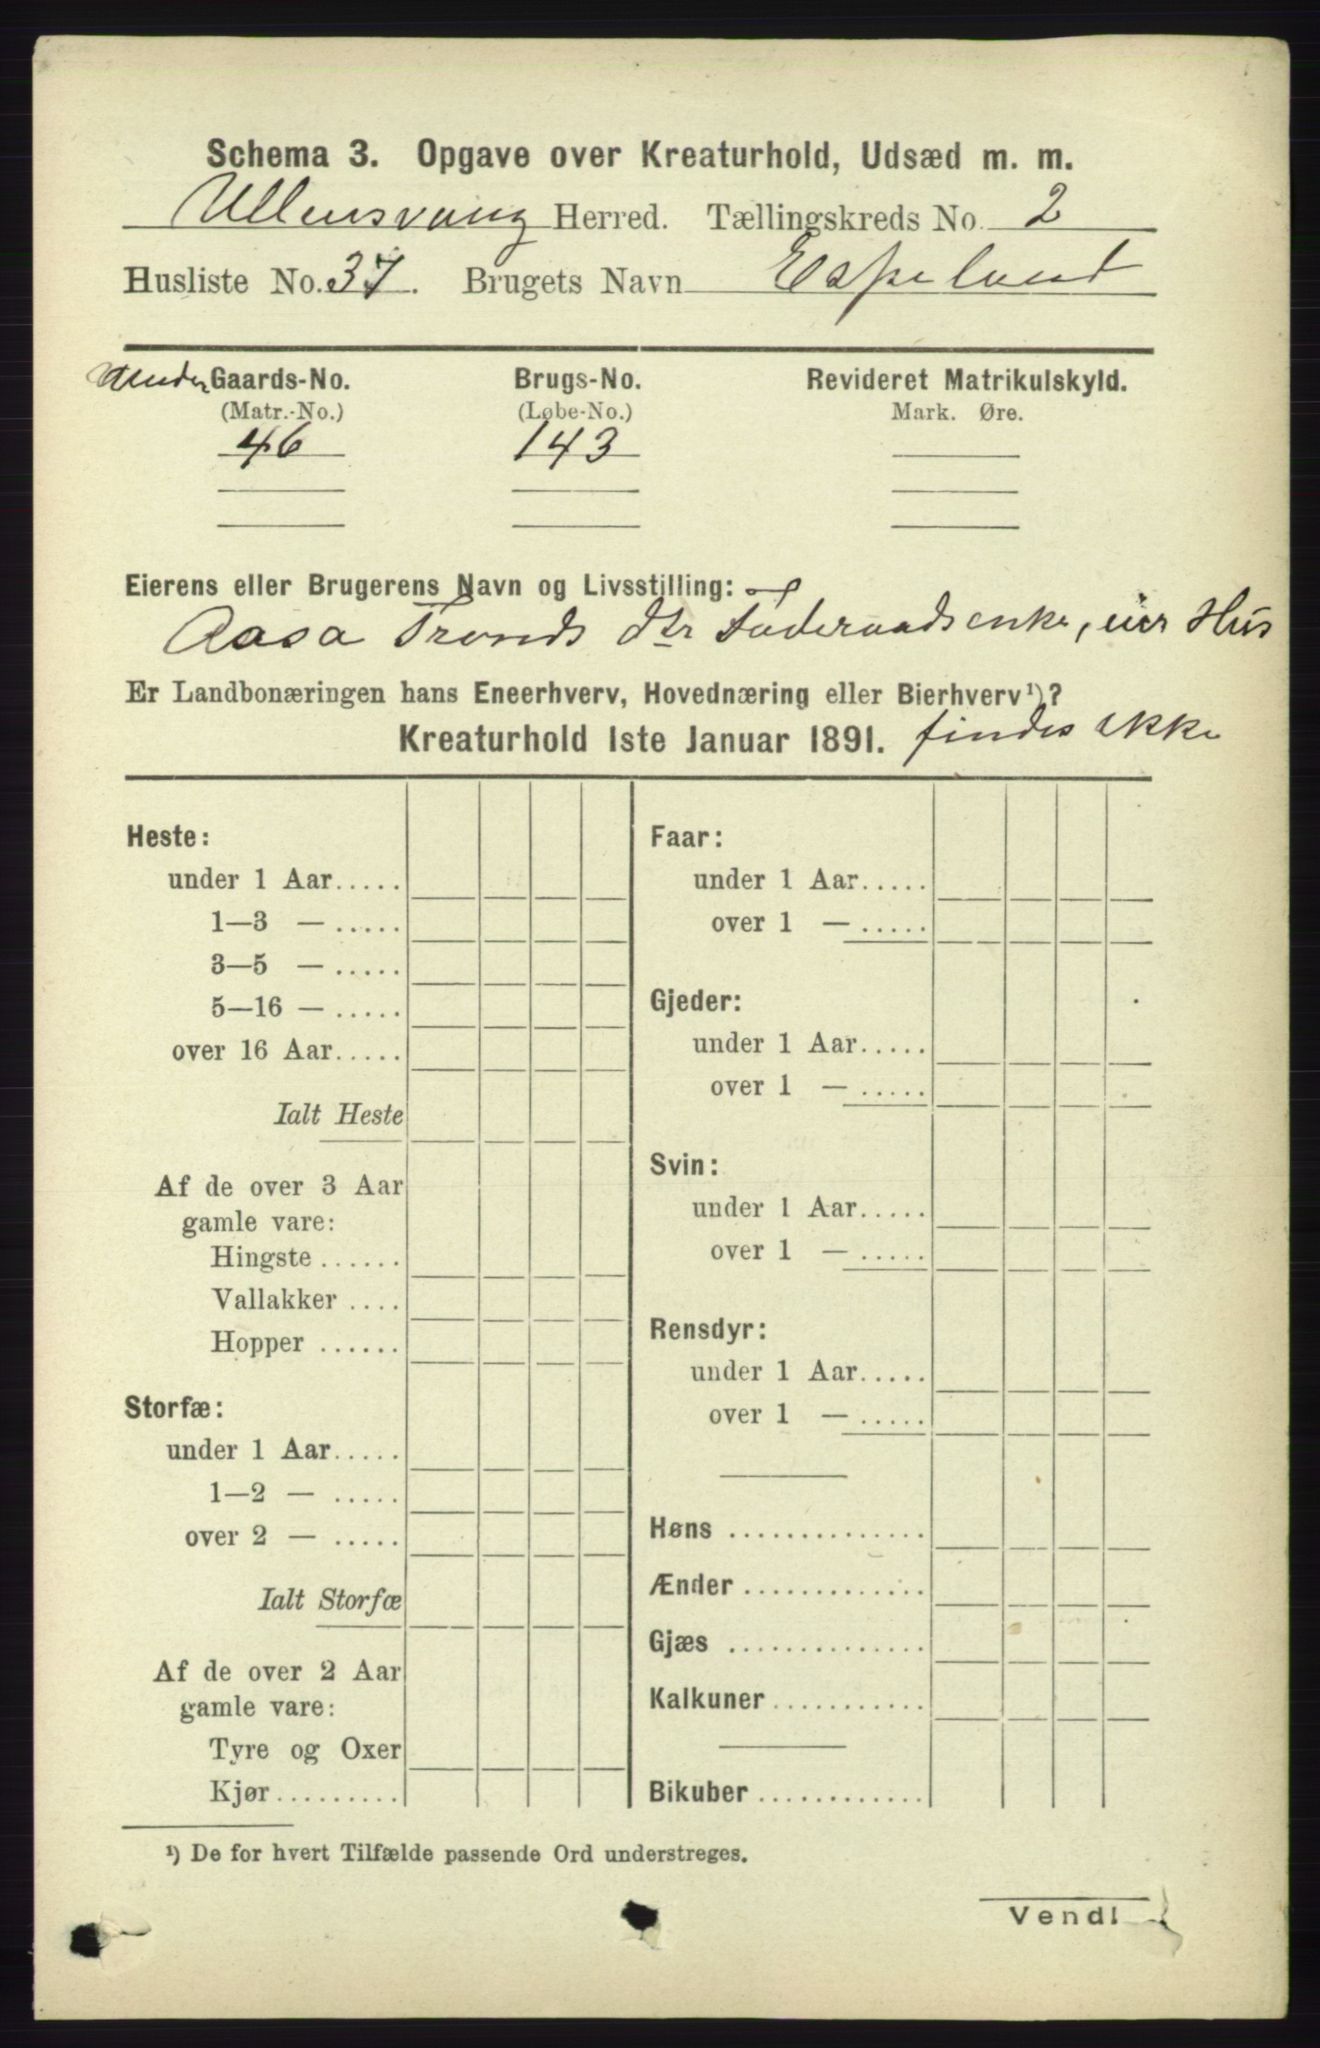 Schema 3. Opgave over Kreaturhold, Udsæd m. m.
Ullensvang Herred. Tællingskreds No. 2
Husliste No. 37. Brugets Navn Espeland
Under Gaards-No. Brugs-No. Revideret Matrikulskyld.
(Matr.-No.) (Løbe-No.) Mark. Øre.
46 143
Eierens eller Brugerens Navn og Livsstilling:
Aasa Tronds Dtr Føderaadsenke, eier Hus
Er Landbonæringen hans Eneerhverv, Hovednæring eller Bierhverv¹)?
Kreaturhold 1ste Januar 1891. findes ikke
Heste:
under 1 Aar.....
1—3 — .....
3—5 — .....
5—16 — .....
over 16 Aar.....
Ialt Heste
Af de over 3 Aar
gamle vare:
Hingste ......
Vallakker ....
Hopper ......
Storfæ:
under 1 Aar.....
1—2 — .....
over 2 — .....
Ialt Storfæ
Af de over 2 Aar
gamle vare:
Tyre og Oxer
Kjør.........
Faar:
under 1 Aar.....
over 1 — .....
Gjeder:
under 1 Aar.....
over 1 — .....
Svin:
under 1 Aar.....
over 1 — .....
Rensdyr:
under 1 Aar.....
over 1 — .....
Høns ..............
Ænder .............
Gjæs ..............
Kalkuner...........
Bikuber ............
¹) De for hvert Tilfælde passende Ord understreges.
Vend!